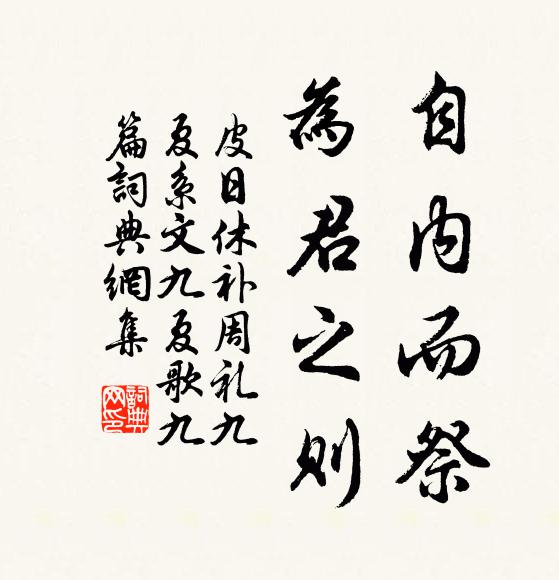 自内而祭
為君之则
皮日休补周礼九
夏系文九夏歌九
篇詞典網集
詞典网印